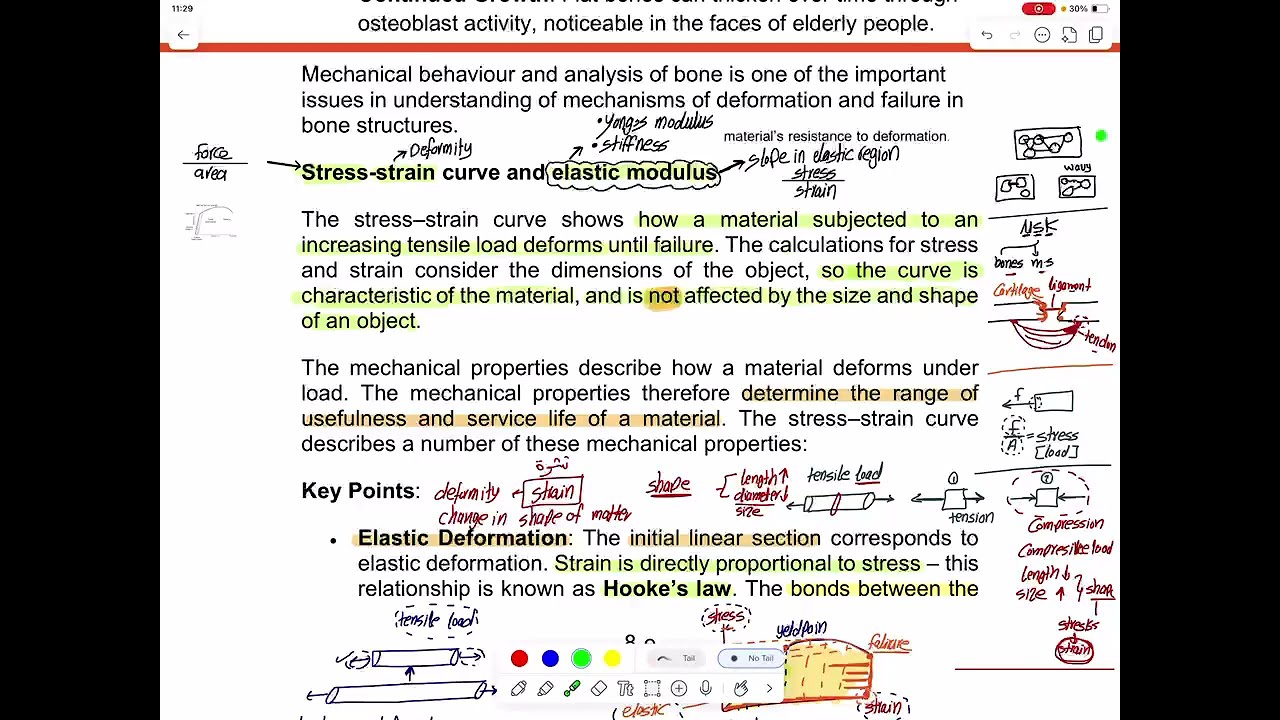 11:29
30%
Continued Growth: Flat bones can thicken over time through
osteoblast activity, noticeable in the faces of elderly people.
Mechanical behaviour and analysis of bone is one of the important
issues in understanding of mechanisms of deformation and failure in
bone structures.
• Yong's modulus
• stiffness
material's resistance to deformation.
Deformity
slope in elastic region
stress
strain
force
area
Stress-strain curve and elastic modulus
wavy
The stress–strain curve shows how a material subjected to an
increasing tensile load deforms until failure. The calculations for stress
and strain consider the dimensions of the object, so the curve is
characteristic of the material, and is not affected by the size and shape
of an object.
MSK
bones m.s
Cartilage ligament
tendon
The mechanical properties describe how a material deforms under
load. The mechanical properties therefore determine the range of
usefulness and service life of a material. The stress–strain curve
describes a number of these mechanical properties:
f
F
A
= stress
[load]
Key Points:
deformity
strain
change in shape of matter
shape
length↑
diameter↓
size
tensile load
①
tension
②
Compression
Compresilee load
length↓
size ↑
shape
stresss
strain
• Elastic Deformation: The initial linear section corresponds to
elastic deformation. Strain is directly proportional to stress – this
relationship is known as Hooke's law. The bonds between the
tensile load
stress
yeldpoin
faliure
strain
elastic
8
Tail
No Tail